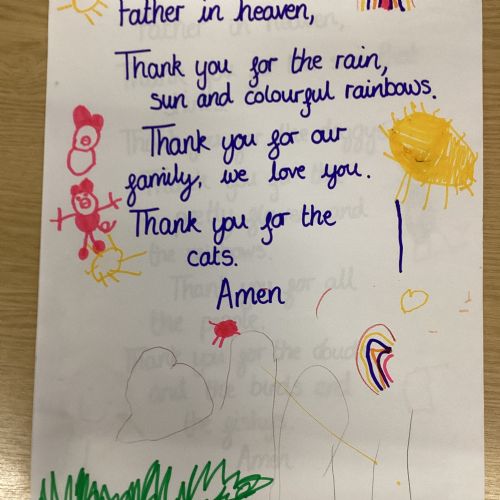 Father in heaven,
Thank you for the rain,
sun and colourful rainbows.
Thank you for our
family, we love you.
Thank you for the
cats.
Amen